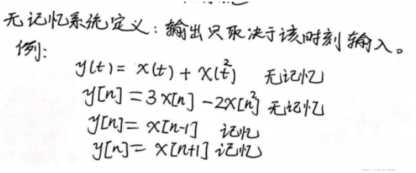 无记忆系统定义：输出只取决于该时刻输入。
例：
y(t) = x(t) + x(t²) 无记忆
y[n] = 3x[n] - 2x[n²] 无记忆
y[n] = x[n-1] 记忆
y[n] = x[n+1] 记忆